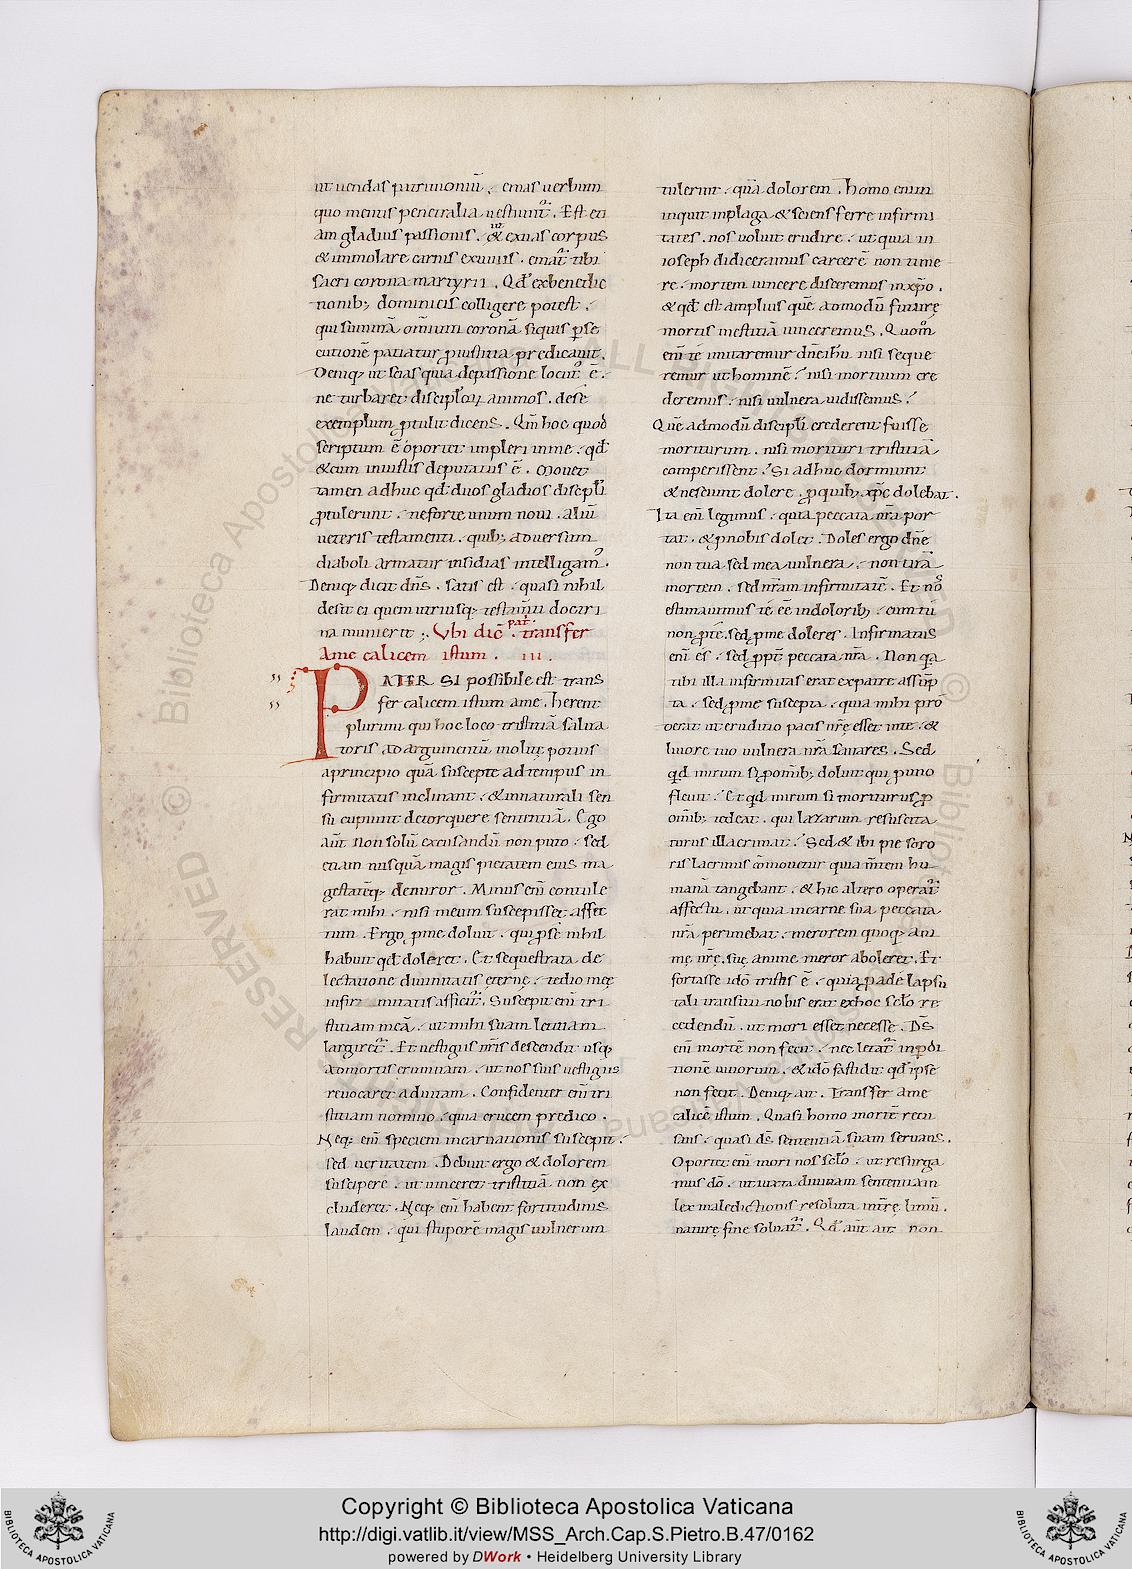 ut uendas patrimoniū, emas uerbum
quo mentis penetralia uestiunt᷑. Est eti
am gladius passionis, ut & exuas corpus
& immolate carnis exuuiis, emat᷑ tibi
sacri corona martyrii. Qđ ex benedic
tionib; dominicis colligere potest,
qui summā omnium coronā siquis pse
cutionē patiatur ꝓ iustitia predicauit.
Deniq; ut scias quia de passione locut᷑ ē,
ne turbaret discipłoꝝ animos, de se
exemplum ꝓtulit dicens. Qm̄ hoc quod
scriptum ē oportet impleri in me, qđ
& cum iniustis deputatus ē. Mouet
tamen adhuc qđ duos gladios discipłi
ꝓtulerunt, ne forte unum noui, aliū
ueteris testamenti, quib; aduersum
diaboli armatur insidias intelligam᷒.
Deniq; dicit dn̄s, satis est, quasi nihil
desit ei quem utriusq; testam̄ti doctri
na munierit. Vbi dic̄ pat᷑ transfer
A me calicem istum. III.
PATER SI possibile est trans
fer calicem istum a me. herent
plurimi qui hoc loco tristitiā salua
toris ad argumentū inolitę potius
a principio quā susceptę ad tempus in
firmitatis inclinant, & innaturali sen
sū cupiunt detorquere sententiā. Ego
aūt non solū excusandū non puto, sed
etiam nusquā magis pietatem eius ma
gestatēq; demiror. Minus em̄ contule
rat mihi, nisi meum suscepisset affec
tum. Ergo ꝓ me doluit, qui ꝓ se nihil
habuit qđ doleret. Et sequestrata de
lectatione diuinitatis eternę, tedio meę
infirmitatis afficit᷑. Suscepit em̄ tri
stitiam meā, ut mihi suam letitiam
largiret᷑. Et uestigiis nr̄is descendit usq;
ad mortis erumnam, ut nos suis uestigiis
reuocaret ad uitam. Confidenter em̄ tri
stitiam nomino, quia crucem predico.
Neq; em̄ speciem incarnationis suscepit,
sed ueritatem. Debuit ergo & dolorem
suscipere, ut uinceret tristitiā non ex
cluderet. Neq; em̄ habent fortitudinis
laudem, qui stuporē magis uulnerum
tulerint, quā dolorem. homo enim
inquit in plaga & sciens ferre infirmi
tates, nos uoluit erudire, ut quia in
ioseph didiceramus carcerē non time
re, mortem uincere disceremus in xp̄o,
& qđ est amplius quē admodū futurę
mortis mestitiā uinceremus. Quom̄
em̄ te imitaremur dn̄e ihū nisi seque
remur ut hominē, nisi mortuum cre
deremus, nisi uulnera uidissemus?
Quē admodū discipłi crederent fuisse
moriturum, nisi morituri tristitiā
comperissent? Si adhuc dormiunt
& nesciunt dolere, ꝓ quib; xp̄c dolebat.
Ita em̄ legimus, quia peccata nr̄a por
tat, & ꝓ nobis dolet. Doles ergo dn̄e
non tua sed mea uulnera, non tuā
mortem, sed nr̄am infirmitatē. Et nos
estimauimus te eē in dolorib;, cum tu
non ꝓ te, sed ꝓ me doleres. Infirmatus
em̄ es, sed ꝓpt̄ peccata nr̄a. Non qa
tibi illa infirmitas erat ex patre assūp
ta, sed ꝓ me suscepta, quia mihi pro
derat ut eruditio pacis nr̄ę esset in te, &
liuore tuo uulnera nr̄a sanares. Sed
qđ mirum si ꝓ omīb; doluit qui ꝓ uno
fleuit? Et qđ mirum si moriturus ꝓ
omīb; tedeat, qui lazarum resuscita
turus illacrimat? Sed & ibi pie soro
ris lacrimis cōmouetur quia m̄tem hu
manā tangebant, & hic altero operat᷑
affectu, ut quia in carne sua peccata
nr̄a perimebat, merorem quoq; ani
mę nr̄ę, suę animę meror aboleret. Et
fortasse ido tristis ē, quia ꝓ adę lapsu
tali transitu nobis erat ex hoc sc̄lo re
cedendū, ut mori esset necesse. Ds̄
em̄ mortē non fecit, nec letat᷑ in pdi
tionē uiuorum, & ido fastidit qđ ipse
non fecit. Deniq; ait. Transfer a me
calicē istum. Quasi homo mortē recu
sans, quasi ds̄ sententiā suam seruans.
Oportet em̄ mori nos sc̄lo, ut resurga
mus dō, ut iuxta diuinam sententiam
lex maledictionis resoluta in tr̄rę limū,
naturę fine soluat᷑. Qđ aūt ait non
Copyright © Biblioteca Apostolica Vaticana
http://digi.vatlib.it/view/MSS_Arch.Cap.S.Pietro.B.47/0162
powered by DWork • Heidelberg University Library
BIBLIOTECA APOSTOLICA VATICANA
BIBLIOTECA APOSTOLICA VATICANA